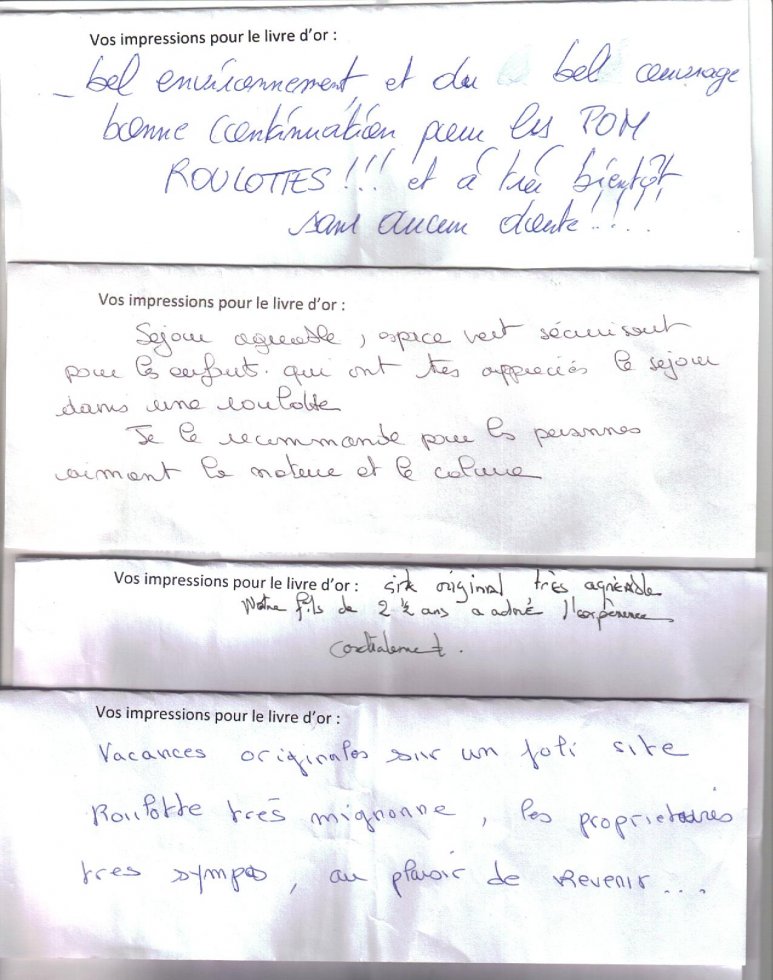 Vos impressions pour le livre d'or :
_ bel environnement, et du bel ouvrage
bonne continuation pour les POM
ROULOTTES !!! et à très bientôt
sans aucun doute !!!!
Vos impressions pour le livre d'or :
Sejour agreable, espace vert sécurisant
pour les enfants. qui ont tres appreciés le sejour
dans une roulotte
Je le recommande pour les personnes
aimant la nature et le calme
Vos impressions pour le livre d'or : site original très agréable
Notre fils de 2 ½ ans a adoré l'expérience
Cordialement.
Vos impressions pour le livre d'or :
Vacances originales sur un joli site
Roulotte très mignonne, les proprietaires
tres sympas, au plaisir de Revenir...